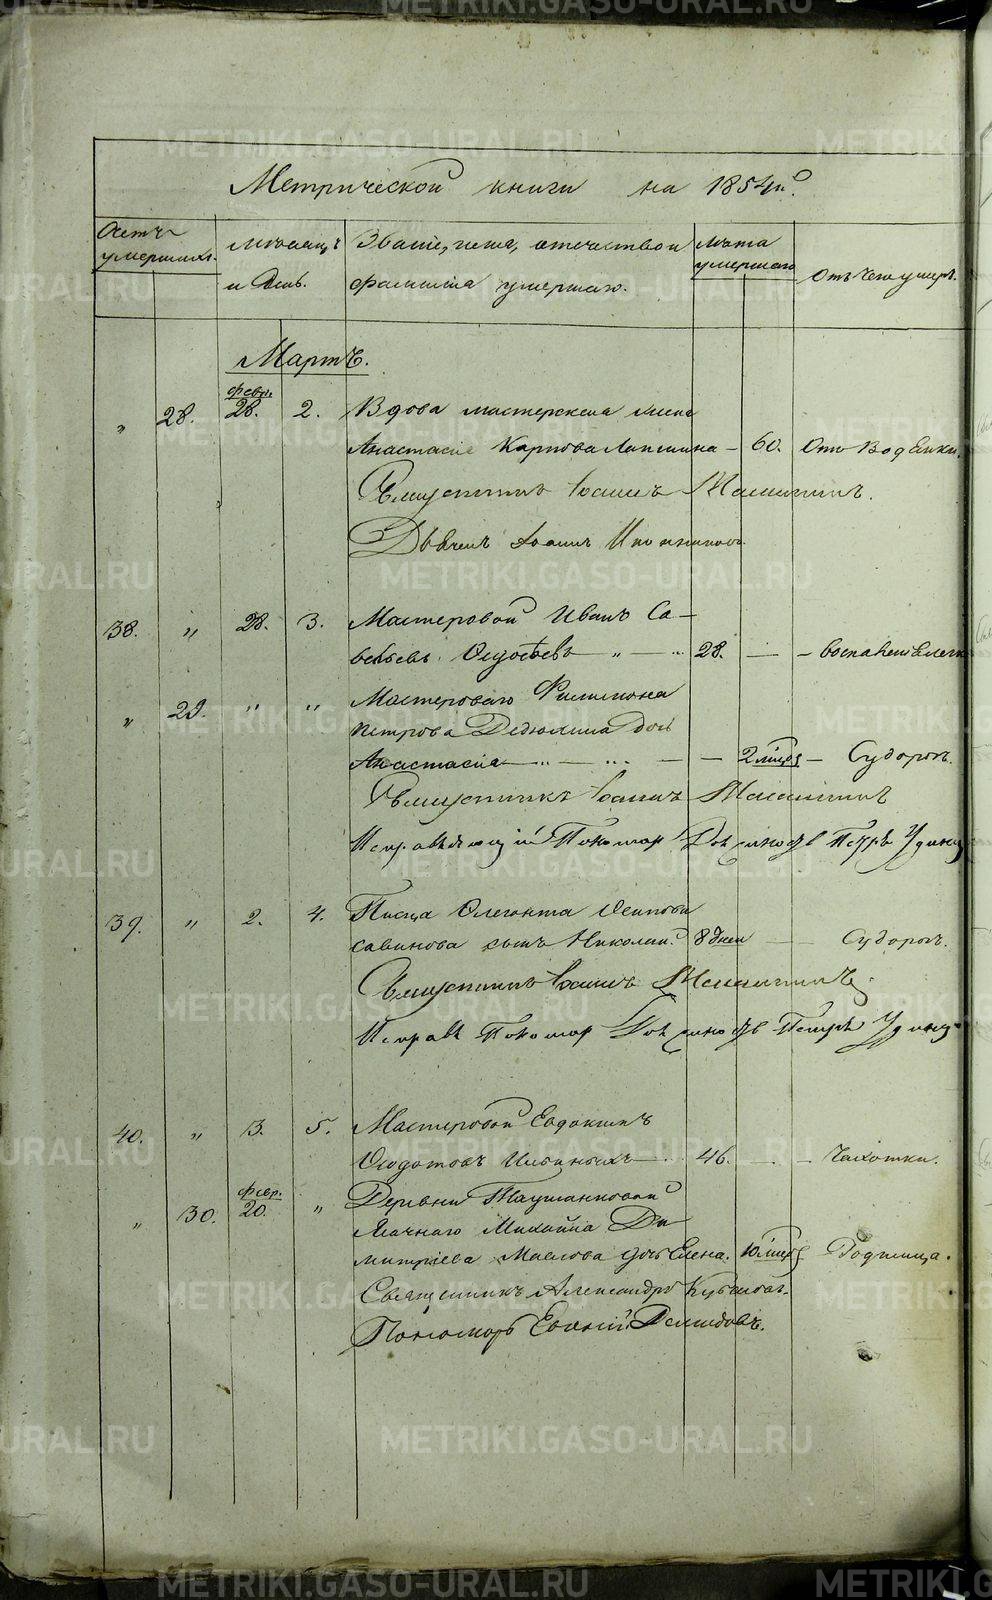 METRIKI.GASO-URAL.RU
Метрической книги на 1854й.
Счетъ умершихъ.
Мѣсяцъ и День.
Званіе, имя, отечество и фамилія умершаго.
Лѣта умершаго
Отъ чего умеръ.
Мартъ.
" 28. февр. 28. 2. Вдова мастерская жена
Анастасія Карпова Лапшина – 60. Отъ Водянки.
Священникъ Іоаннъ Маляминъ.
Дьячекъ Іоаннъ Иконниковъ.
38. " 28. 3. Мастеровой Иванъ Са-
вельевъ Ѳедосѣевъ – " – 28. – –
" 29. " " Мастероваго Филимона
Петрова Дедюлина дочь
Анастасія – " – – 2 мѣсяц – Судорог.
Священникъ Іоаннъ Маляминъ
Исправляющій Пономар. Петръ Удинц
39. " 2. 4. Писца Осипова
Савинова сынъ Николай. 8 дней – Судорог.
Священникъ Іоаннъ Маляминъ.
Исправ. Пономар Петръ Удинц
40. " 3. 5. Мастеровой Евдокимъ
Ѳедотовъ Ильиныхъ – . 46. – – Чахотки.
" 30. февр. 20. " Деревни Таушканковой
Ямчнаго Михаила Ди
митріева Маслова дочь Елена. 10 мѣсяц Родимца.
Священникъ Александръ
Пономарь Евгеній Демидовъ.